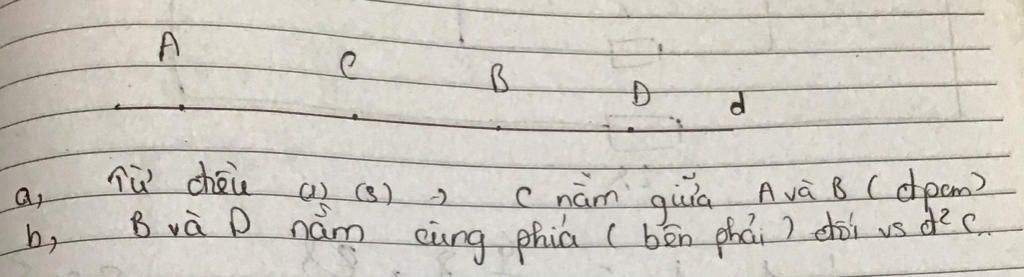 A
C
B
D
d
a, Từ điều (1) (3) → C nằm giữa A và B (đpcm)
b, B và D nằm cùng phía (bên phải) đối vs đ² C.